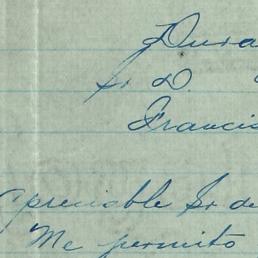 Dura
Sr. D.
Francis
Apreciable Sr. de
Me permito